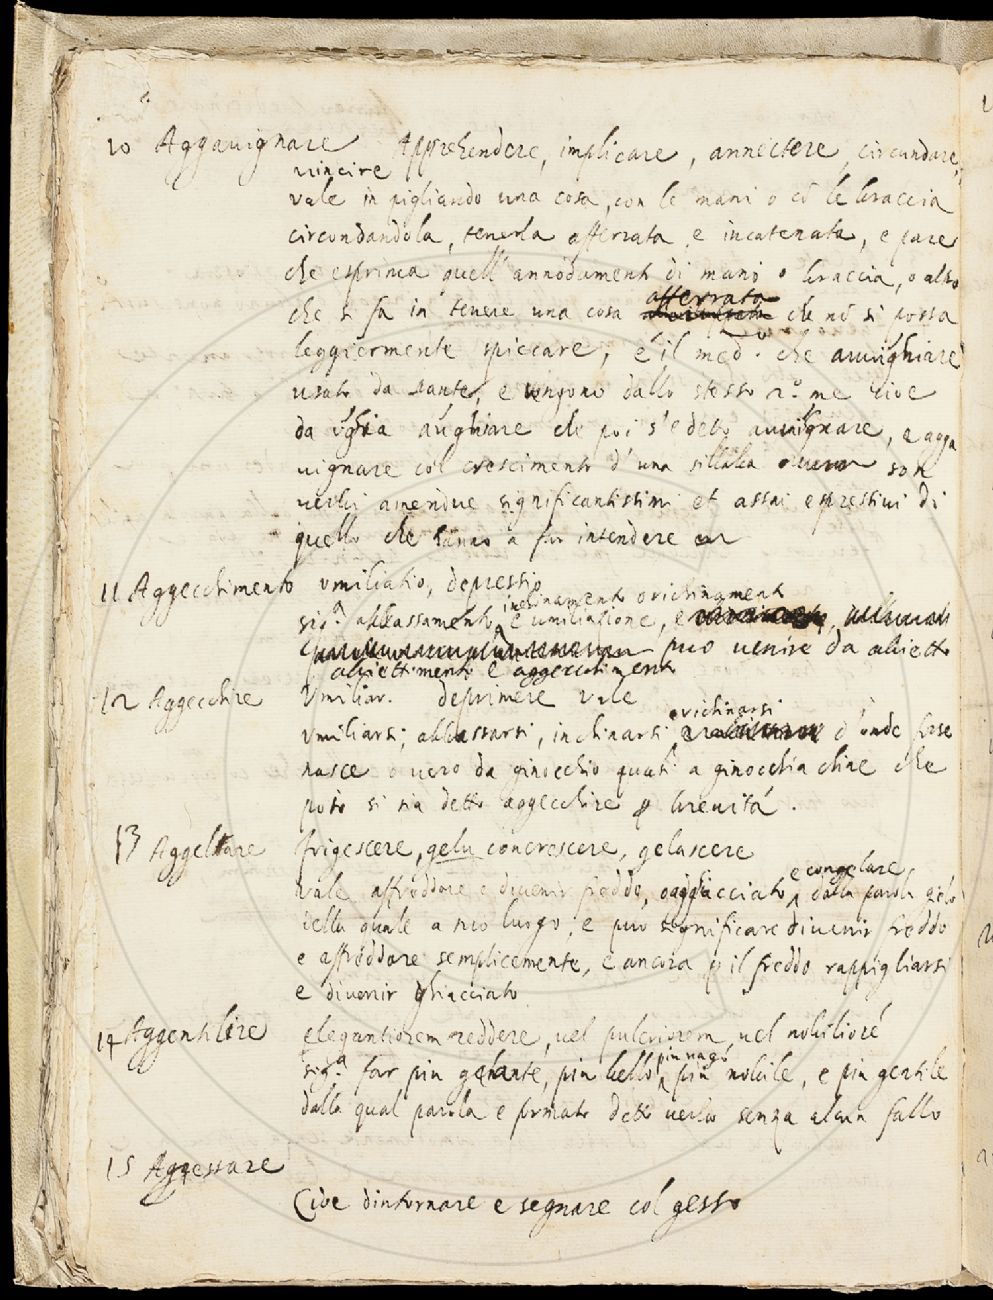 10 Aggauignare Apprehendere, implicare, annectere, circundare,
uincire
vale in pigliando una cosa, con le mani o cõ le braccia
circondandola, tenerla afferrata e incatenata, e pare
che esprima quell'annodamento di mani o braccia, o altro
che si fa in tenere una cosa afferrata che nõ si possa
leggiermente spiccare, e il med.o che auuighiare
usato da Dante, e vengono dallo stesso n.o me cioe
da ughia aughiare che poi s'e detto auuignare, e agga
uignare col crescimento d'una sillaba son
uerbi amendue significantissimi et assai espressiui di
quello che hanno a far intendere
11 Aggecchimento vmiliatio, depressio
inchinamento o richinamento
sig.a abbassamento, e umiliazione, e
puo uenire da abietto
abiettimento e aggecchimento
12 Aggecchire Vmiliar. deprimere vale
o richinarsi
vmiliarsi, abbassarsi, inchinarsi d'onde forse
nasce o uero da ginocchio quasi a ginocchia chine che
poi si sia detto aggecchire p breuità.
13 Aggelare frigescere, gelu concrescere, gelascere
e congelare
vale affreddare e diuenir freddo, o agghiacciato dalla parola gielo
della quale a suo luogo, e puo significare diuenir freddo
e affreddare semplicemente, e ancora p il freddo rappigliarsi
e diuenir ghiacciato
14 Aggentilire elegantiorem reddere, uel pulcriorem uel nobilioré
piu uago
sig.a far piu galante, piu bello piu nobile, e piu gentile
dalla qual parola e formato detto uerbo senza alcun fallo
15 Aggessare
Cioe dintornare e segnare col gesso